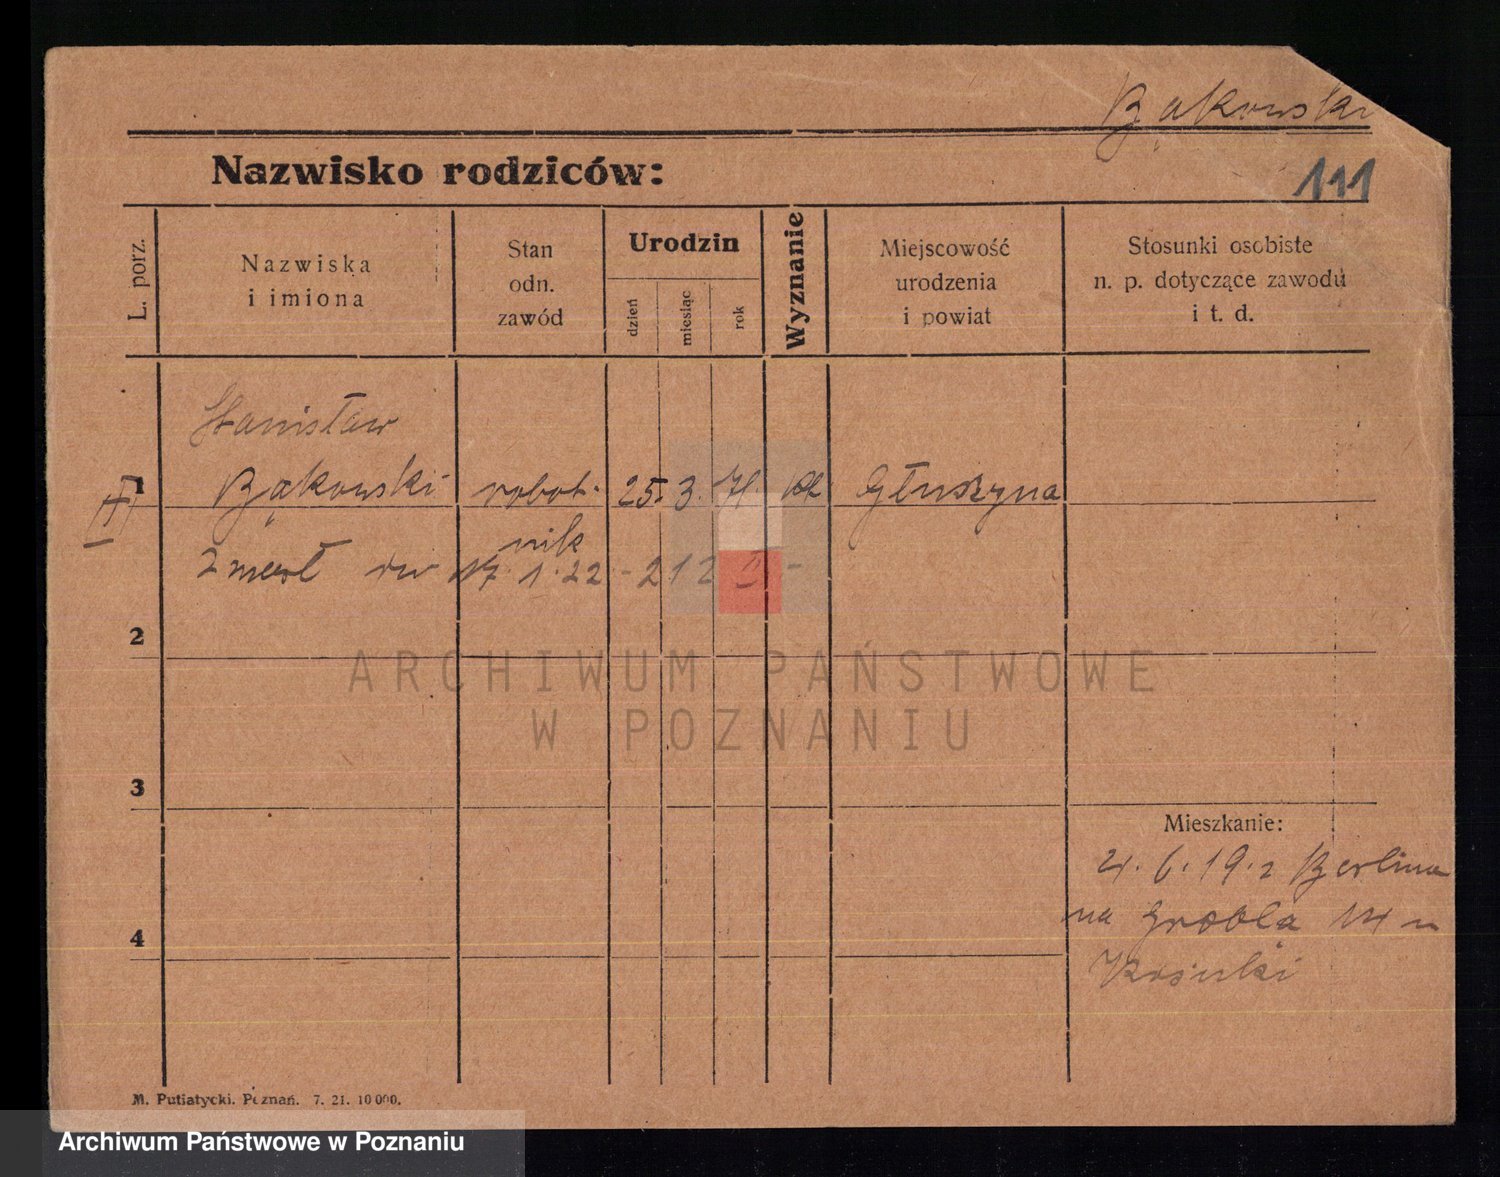 Bąkowski
Nazwisko rodziców:
111
L. porz.
Nazwiska
i imiona
Stan
odn.
zawód
Urodzin
dzień
miesiąc
rok
Wyznanie
Miejscowość
urodzenia
i powiat
Stosunki osobiste
n. p. dotyczące zawodu
i t. d.
Stanisław
1 Bąkowski robot- 25. 3. Głuszyna
nik
zmarł 17. 1. 22 - 212
2
ARCHIWUM PAŃSTWOWE
W POZNANIU
3
Mieszkanie:
21. 6. 19. z Berlina
na Grobla 14 u
4
M. Putiatycki. Poznań. 7. 21. 10 000.
Archiwum Państwowe w Poznaniu